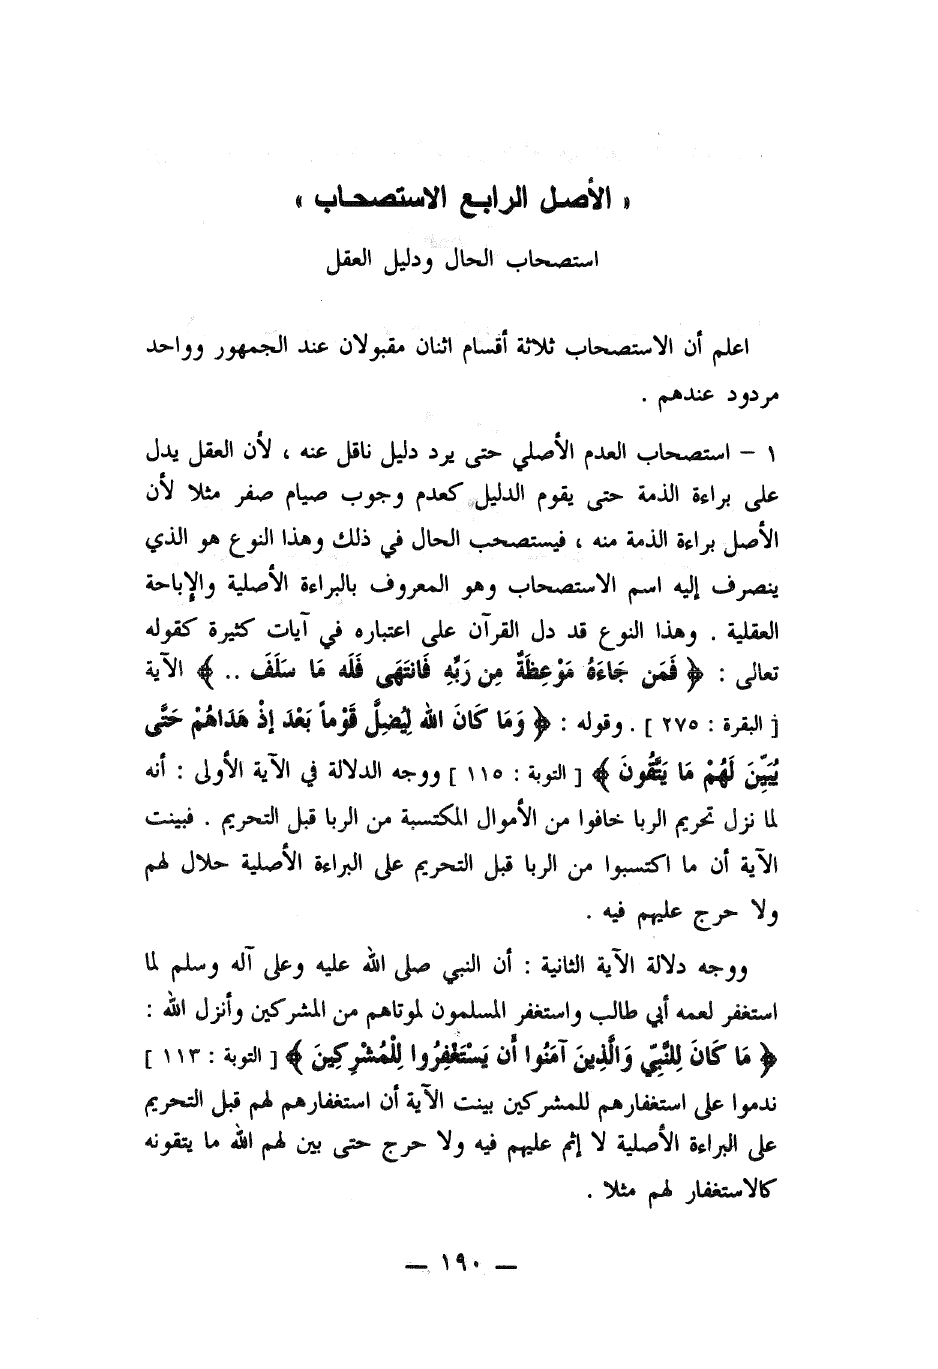 « الأصل الرابع الاستصحاب »
استصحاب الحال ودليل العقل
اعلم أن الاستصحاب ثلاثة أقسام اثنان مقبولان عند الجمهور وواحد
مردود عندهم .
١ – استصحاب العدم الأصلي حتى يرد دليل ناقل عنه ، لأن العقل يدل
على براءة الذمة حتى يقوم الدليل كعدم وجوب صيام صفر مثلا لأن
الأصل براءة الذمة منه ، فيستصحب الحال في ذلك وهذا النوع هو الذي
ينصرف إليه اسم الاستصحاب وهو المعروف بالبراءة الأصلية والإباحة
العقلية . وهذا النوع قد دل القرآن على اعتباره في آيات كثيرة كقوله
تعالى : ﴿ فَمَن جَاءَهُ مَوْعِظَةٌ مِن رَبِّهِ فَانتَهَى فَلَه مَا سَلَفَ .. ﴾ الآية
[ البقرة : ٢٧٥ ] . وقوله : ﴿ وَمَا كَانَ اللهُ لِيُضِلَّ قَوْماً بَعْدَ إذْ هَدَاهُمْ حَتَّى
يُبَيِّنَ لَهُمْ مَا يَتَّقُونَ ﴾ [ التوبة : ١١٥ ] ووجه الدلالة في الآية الأولى : أنه
لما نزل تحريم الربا خافوا من الأموال المكتسبة من الربا قبل التحريم . فبينت
الآية أن ما اكتسبوا من الربا قبل التحريم على البراءة الأصلية حلال لهم
ولا حرج عليهم فيه .
ووجه دلالة الآية الثانية : أن النبي صلى الله عليه وعلى آله وسلم لما
استغفر لعمه أبي طالب واستغفر المسلمون لموتاهم من المشركين وأنزل الله :
﴿ مَا كَانَ لِلنَّبِيِّ وَالَّذِينَ آمَنُوا أَن يَسْتَغْفِرُوا لِلْمُشْرِكِينَ ﴾ [ التوبة : ١١٣ ]
ندموا على استغفارهم للمشركين بينت الآية أن استغفارهم لهم قبل التحريم
على البراءة الأصلية لا إثم عليهم فيه ولا حرج حتى بين لهم الله ما يتقونه
كالاستغفار لهم مثلا .
— ١٩٠ —